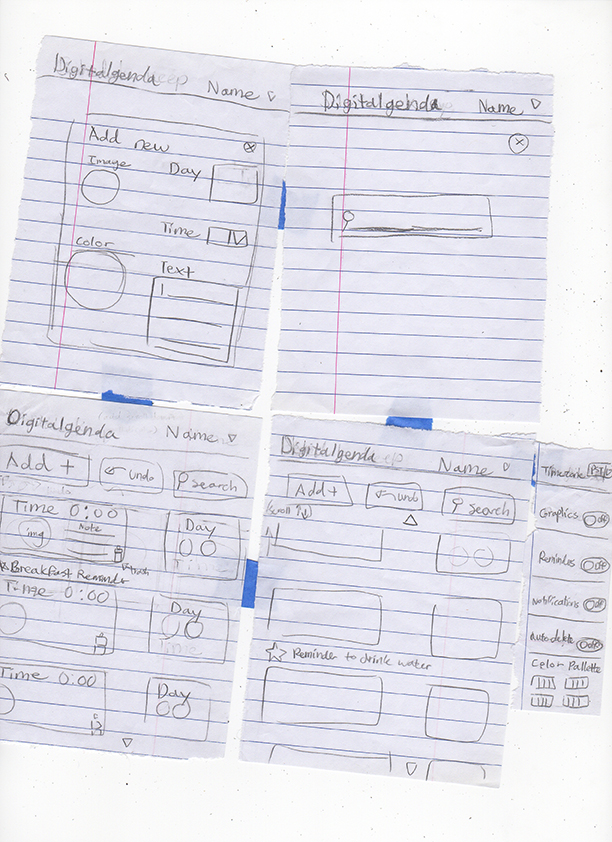 Digitalgenda
Name
Add new
Image
Day
Time
Color
Text
Digitalgenda
Name
Digitalgenda
Name
Add +
undo
search
Time 0:00
img
Note
trash
Day
Breakfast Reminder
Time 0:00
Day
Time
Time 0:00
Day
Digitalgenda
Name
Add +
undo
search
(scroll ↑↓)
Reminder to drink water
Timezone
Graphics
off
Remindes
off
Notifications
off
Autodelete
off
Color Pallette